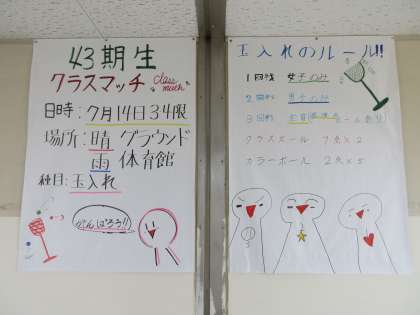 43期生
クラスマッチ class match
日時:7月14日34限
場所:晴 グラウンド
雨 体育館
種目:玉入れ
がんばろう!!
玉入れのルール!!
1回戦 女子のみ
2回戦 男子のみ
3回戦
クラスボール 7点×2
カラーボール 2点×5